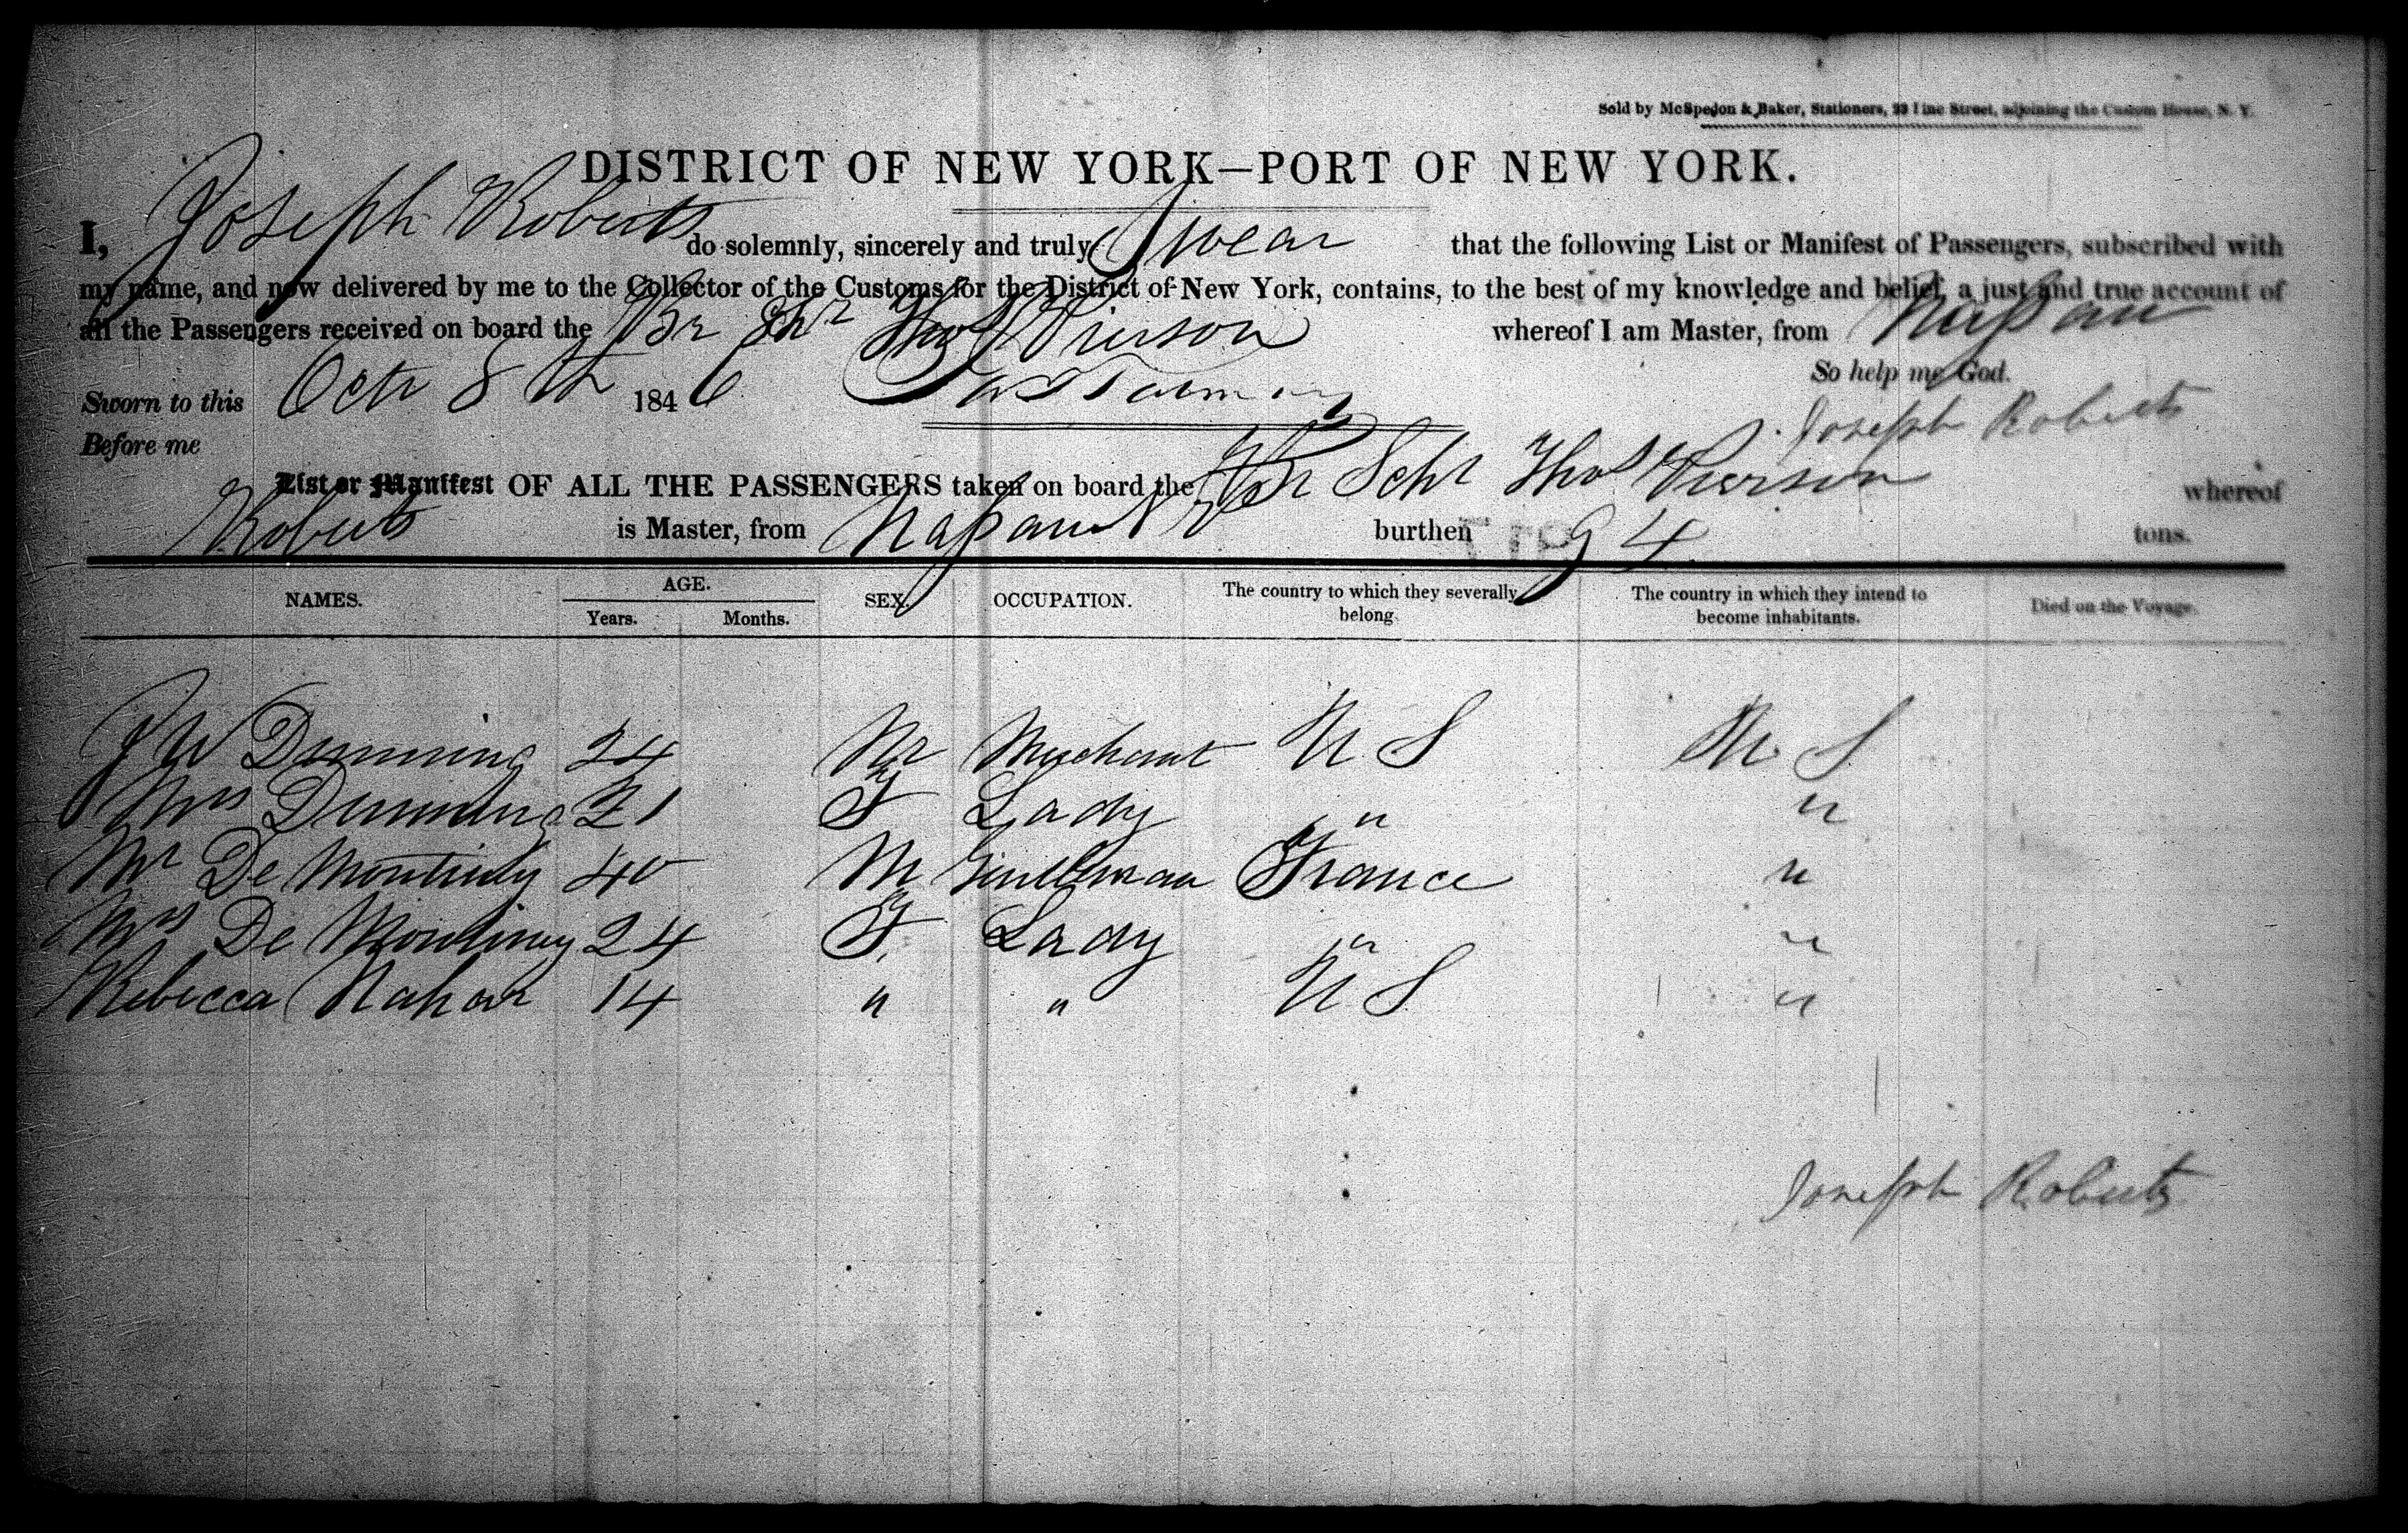 Sold by McSpedon & Baker, Stationers, 23 Pine Street, adjoining the Custom House, N. Y.
DISTRICT OF NEW YORK—PORT OF NEW YORK.
I, Joseph Roberts do solemnly, sincerely and truly Swear that the following List or Manifest of Passengers, subscribed with
my name, and now delivered by me to the Collector of the Customs for the District of New York, contains, to the best of my knowledge and belief, a just and true account of
all the Passengers received on board the Br Schr Thos Pierson whereof I am Master, from Nassau
So help me God.
Sworn to this Octr 8th 1846
Joseph Roberts
Before me
List or Manifest OF ALL THE PASSENGERS taken on board the Br Schr Thos Pierson whereof
Roberts is Master, from Nassau N P burthen 94 tons.
NAMES. AGE. SEX. OCCUPATION. The country to which they severally belong. The country in which they intend to become inhabitants. Died on the Voyage.
Years. Months.
J W Dunning 24 M Merchant U S U S
Mrs Dunning 21 F Lady " "
Mr De 40 M Gentleman France "
Mrs De 24 F. Lady " "
Rebecca Nahar 14 " " U S "
Joseph Roberts